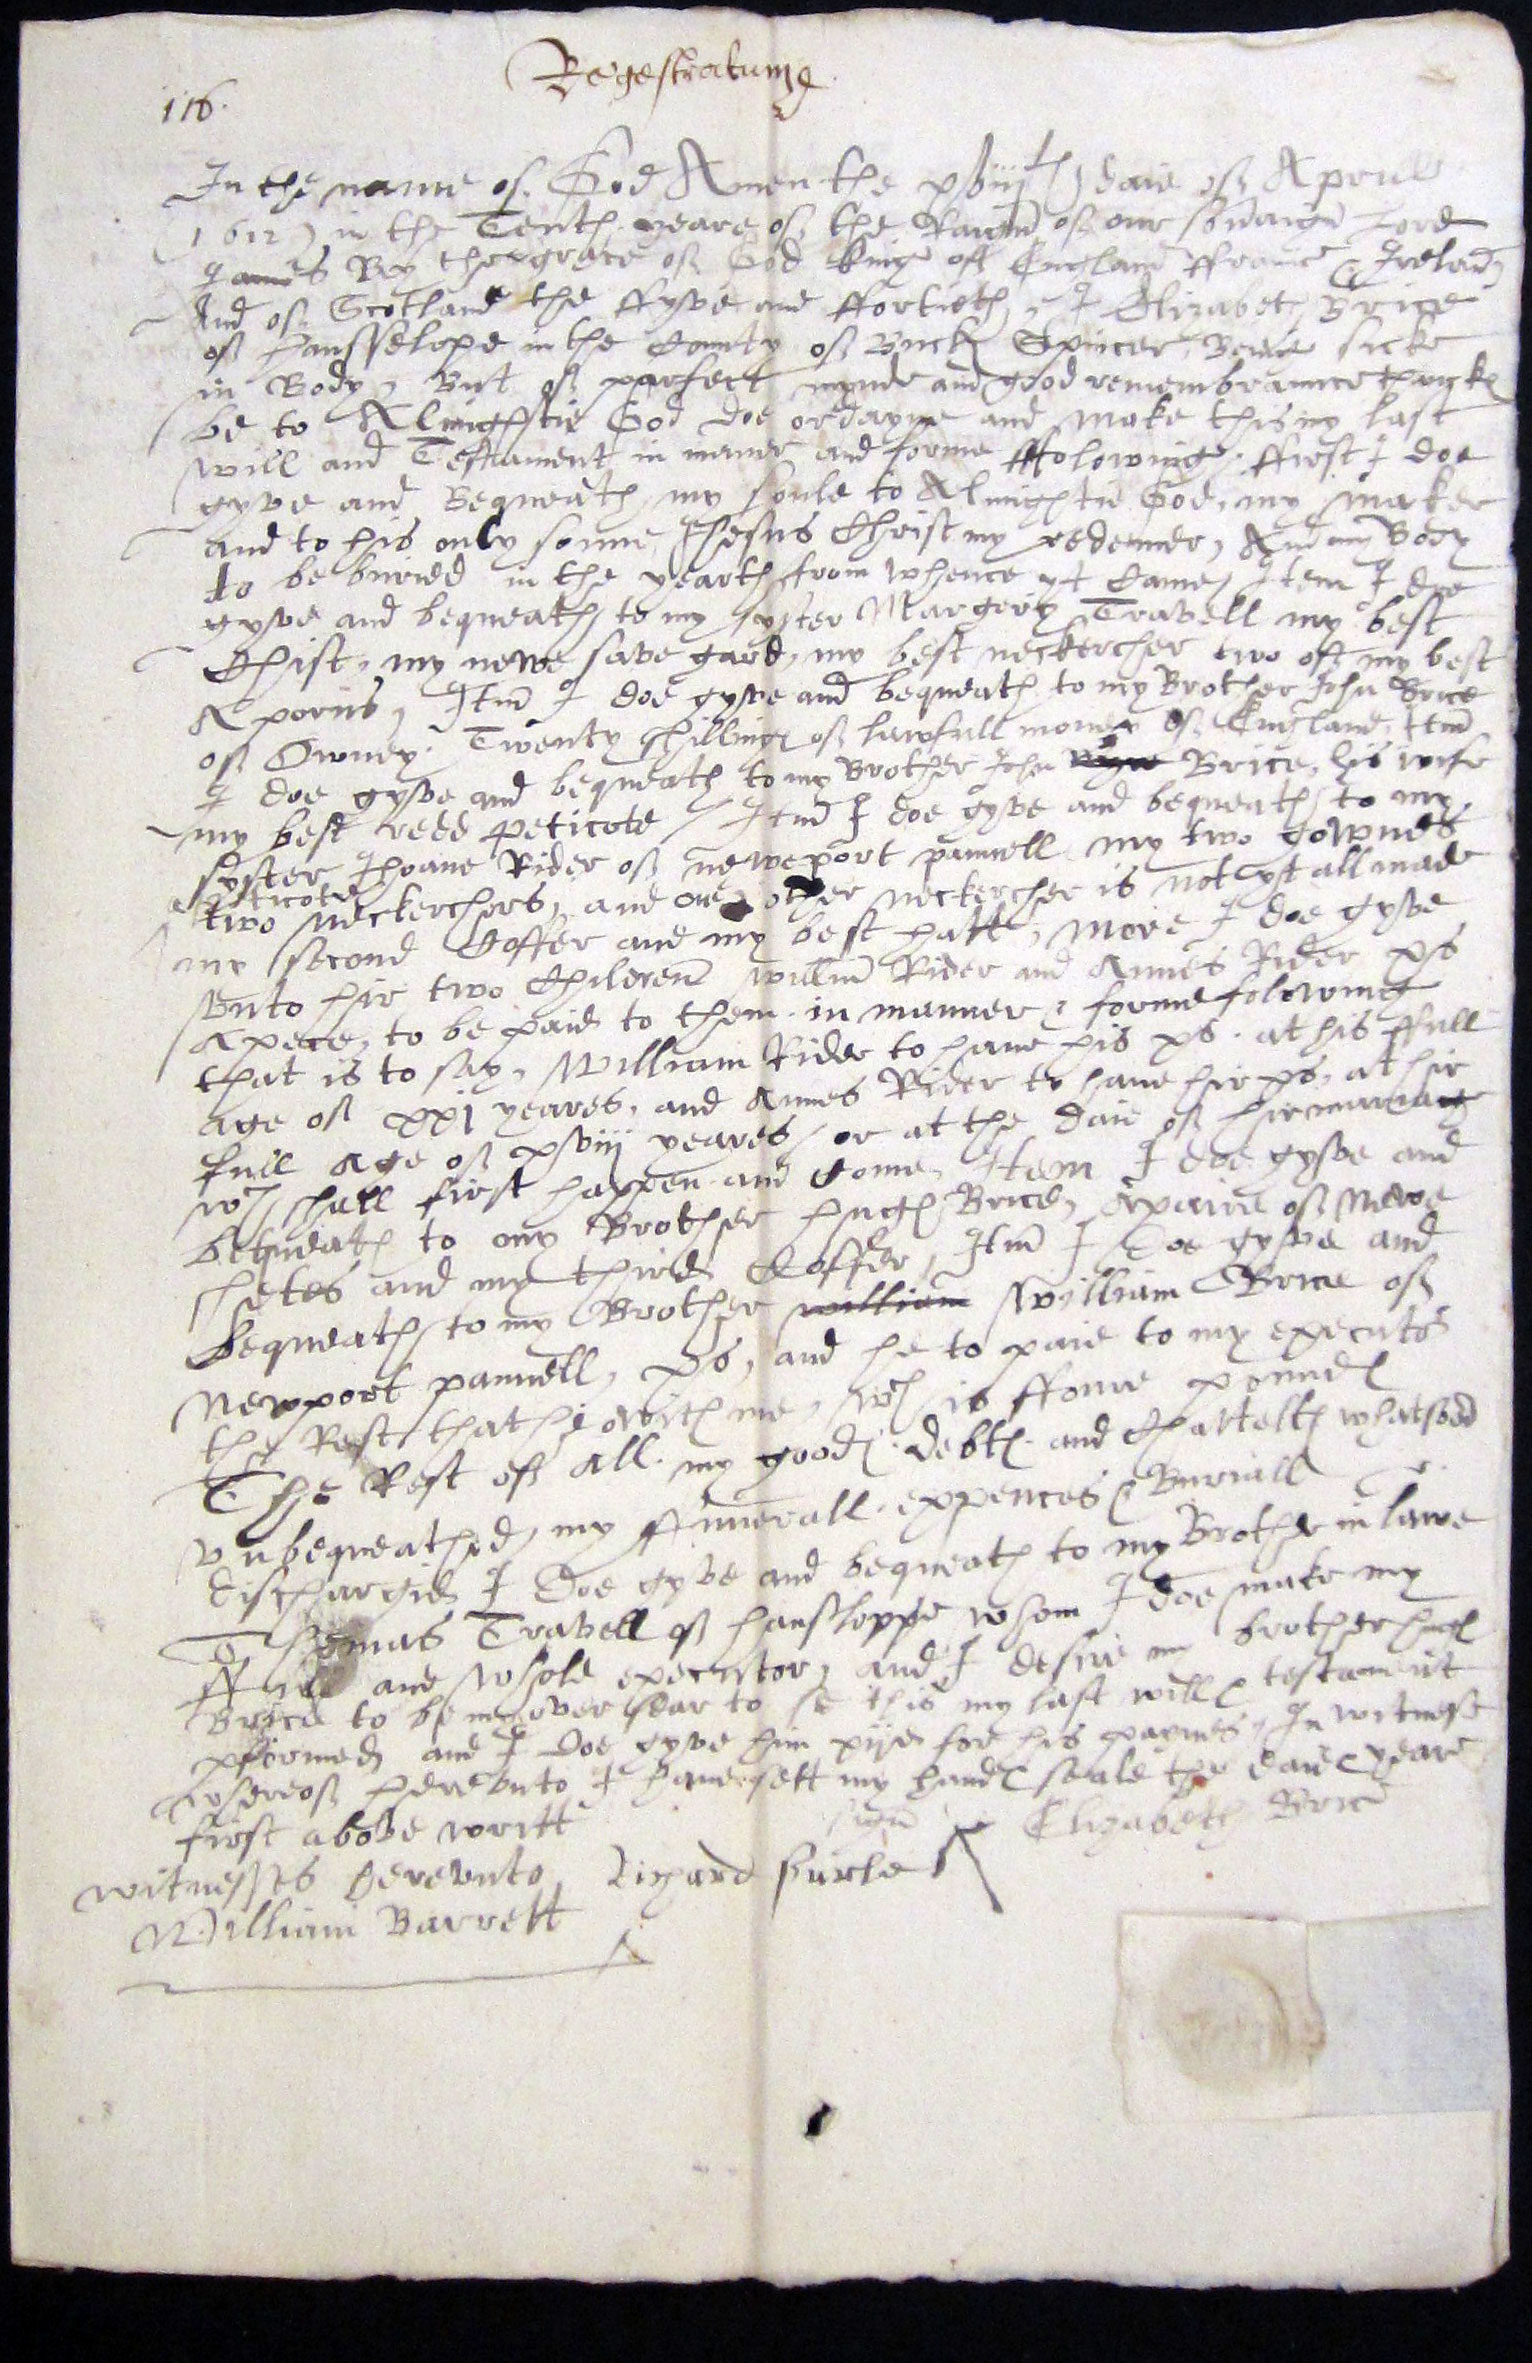 Regestratum
116.
In the name of God Amen the xviijth daie of Aprill
1612 in the Tenth yeare of the Raign of our sovraign Lord
James By the grace of God king off England ffrance & Ireland
And of Scotland the ffyve and ffortieth, I Elizabeth Brice
of Hansselope in the County of Buck Spincer, Beinge sicke
in Body, But of parfect mynde and good remembraunce thanks
be to Almightie God doe ordayne and make this my last
will and Testament in maner and forme ffolowinge, ffirst I doe
gyve and Bequeath my soule to Almightie God, my maker
and to his only sonne Jhesus Christ my redemer, And my Body
to be buried in the yearth from whence yt Came, Item I doe
gyve and bequeath to my syster Margery Travell my best
Chist, my newe save gard, my best neckercher two off my best
Aporns, Itm I doe gyve and bequeath to my Brother John Brice
of Owney Twenty shillings of lawfull money of England, Itm
I doe gyve and bequeath to my Brother John Brice, his wife
my best redd peticote, Itm I doe gyve and bequeath to my
syster Jhoane Rider of neweport pannell my two gownes
peticote
two neckerchers, and one other neckercher is not yt all made
my second Coffer and my best hatt, more I doe gyve
vnto hir two Children willm Rider and Annes Rider xs
apece, to be paid to them in manner & forme folowing
that is to say, William Rider to have his xs. at his ffull
age of xxj yeares, and Annes Rider to have hir xs, at hir
full age of xviij yeares, or at the daie of hir mariag
wch shall first happen and Come, Item I doe gyve and
bequeath to my Brother Hugh Brice, a paire of Newe
shetes and my third Coffer, Itm I doe gyve and
bequeath to my Brother william William Brice of
Newport pannell, xs, and he to paie to my executor
the Rest that he oweth me, wch is ffoure pounds
The Rest off all my goods debts and Chattells whatsoev
vnbequeathed, my ffunerall expences & Buriall
dischargid I Doe gyve and bequeath to my Brother in lawe
Thomas Travell of hansloppe whom I doe make my
ffull and whole executor, and I desire my brother hugh
Brice to be my over sear to se this my last will & testament
pformed and I doe gyve him xijd for his paynes, In witnesse
whereof herevnto I have sett my hand & seale the daie & yeare
first above writt
signu Elizabeth Brice
witnesses herevnto Richard
William Barrett